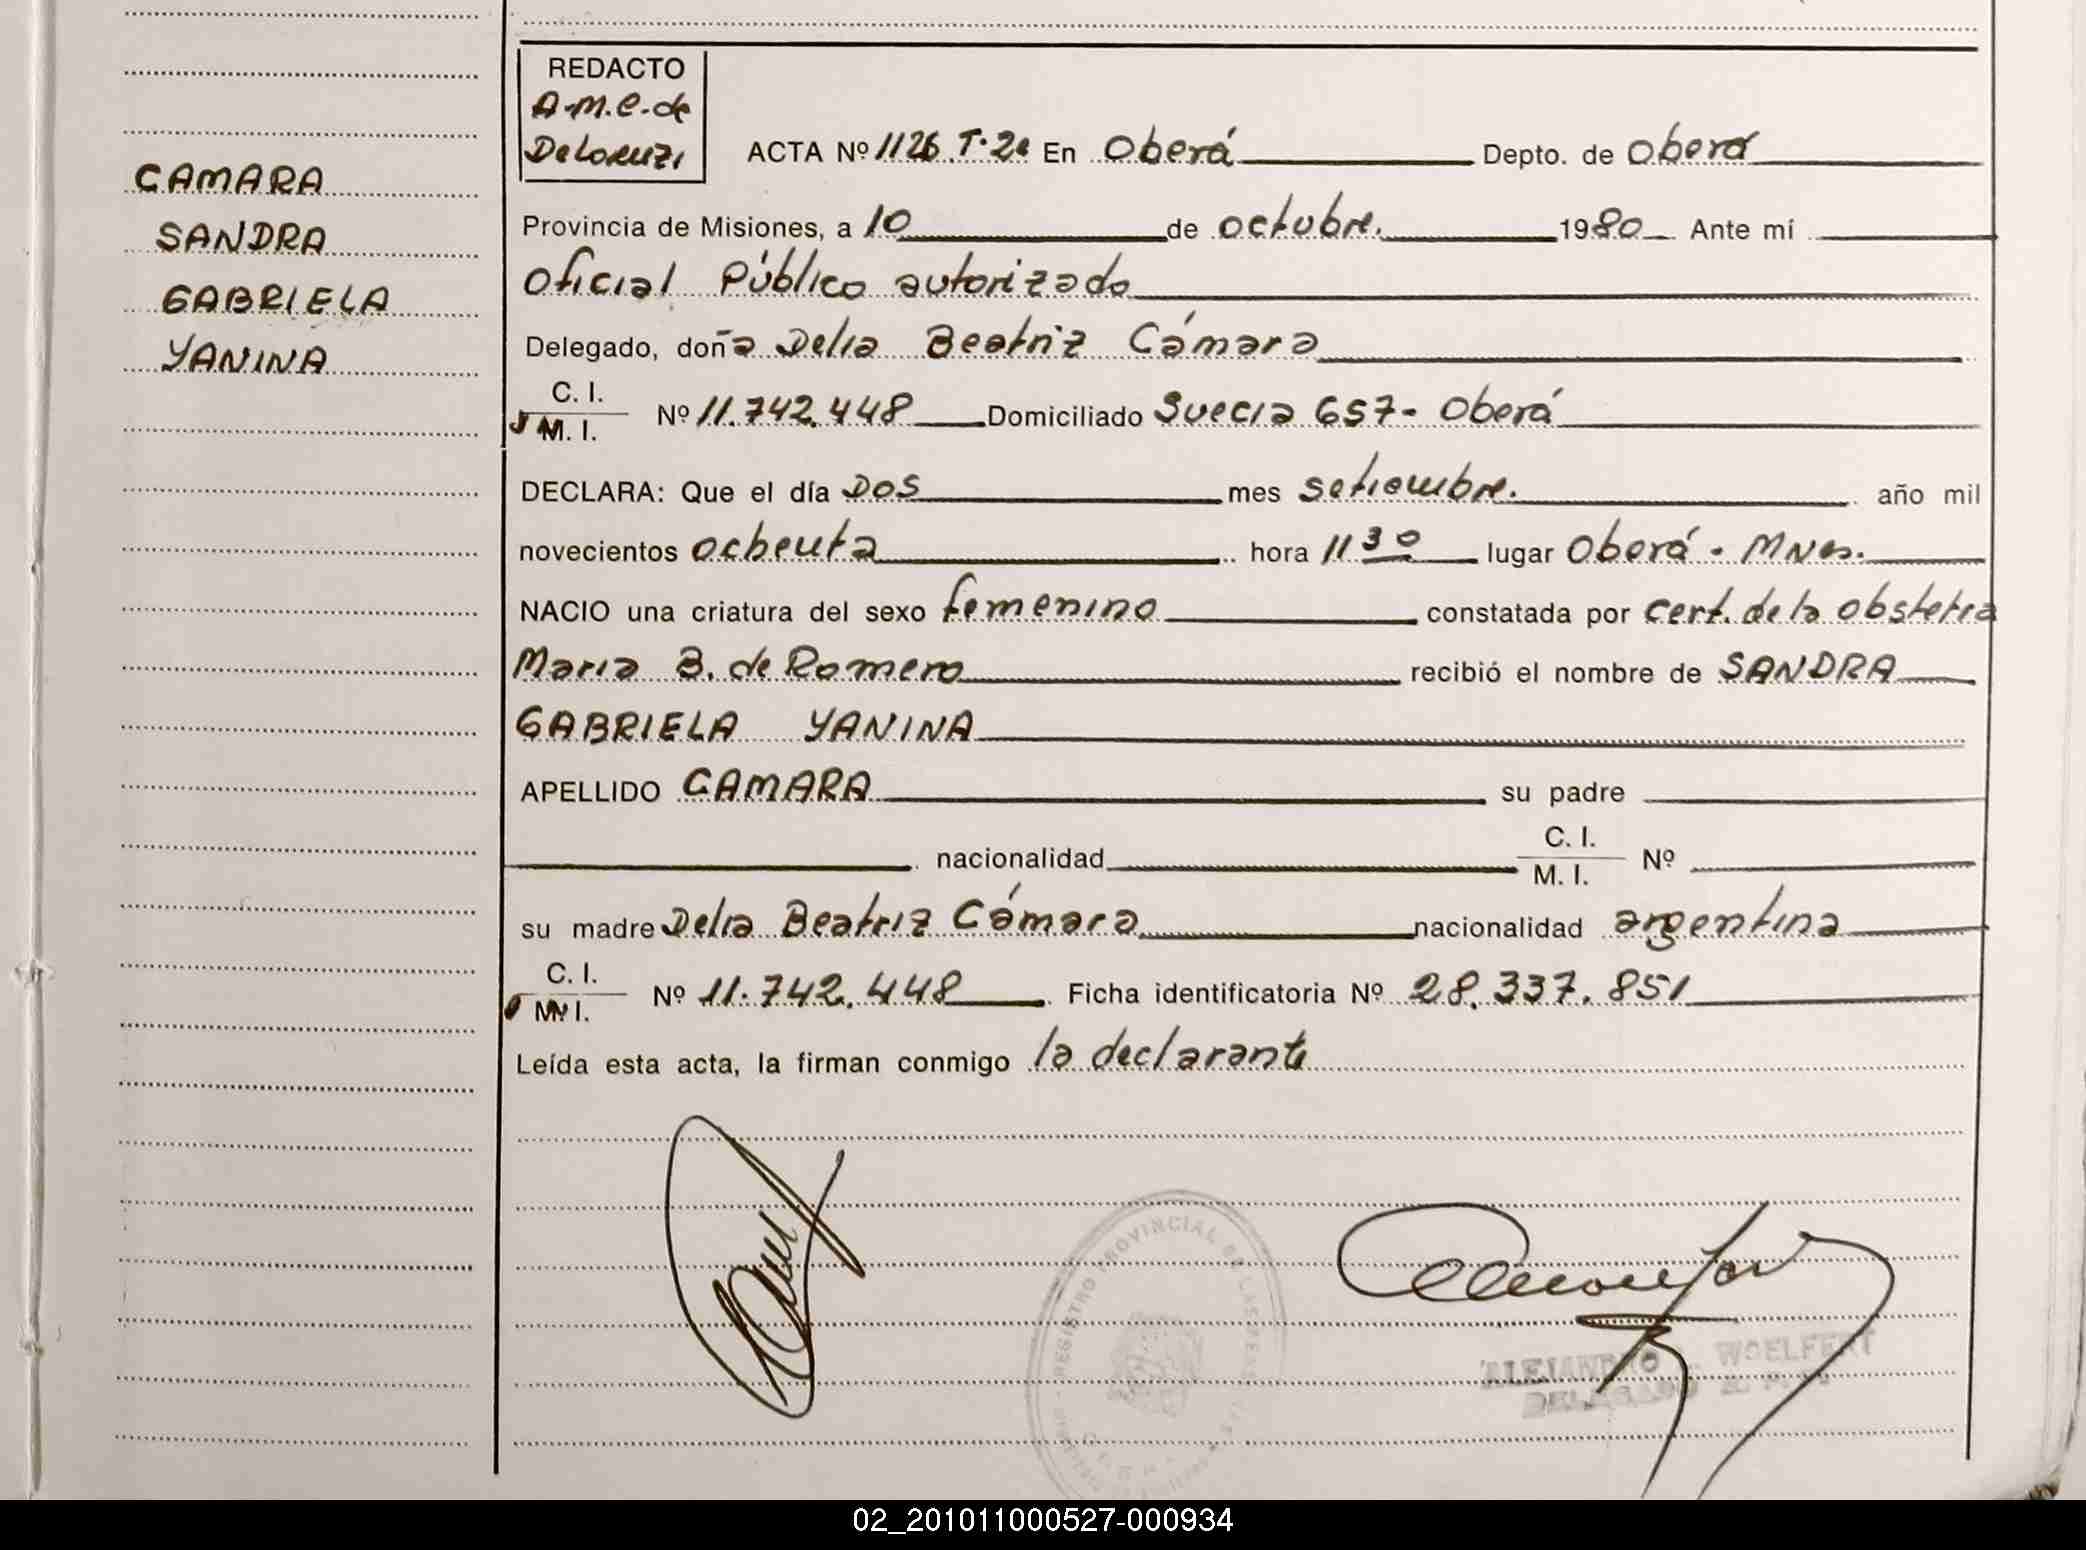 CAMARA
SANDRA
GABRIELA
YANINA
REDACTO
A.M.C. de
DeLorenzi
ACTA Nº 1126 T.2º En Oberá Depto. de Oberá
Provincia de Misiones, a 10 de octubre. 1980 Ante mí
Oficial Público autorizado
Delegado, doña Delia Beatriz Cámara
C. I.
M. I. Nº 11.742.448 Domiciliado Suecia 657- Oberá
DECLARA: Que el día Dos mes setiembre. año mil
novecientos ochenta hora 11 30 lugar Oberá - Mnes.
NACIO una criatura del sexo femenino constatada por cert. de la obstetra
Maria B. de Romero recibió el nombre de SANDRA
GABRIELA YANINA
APELLIDO CAMARA su padre
nacionalidad C. I.
M. I. Nº
su madre Delia Beatriz Cámara nacionalidad argentina
C. I.
M. I. Nº 11.742.448 Ficha identificatoria Nº 28.337.851
Leída esta acta, la firman conmigo la declarante
REGISTRO PROVINCIAL DE LAS PERSONAS
ALEJANDRO WOELFERT
DELEGADO
02_201011000527-000934